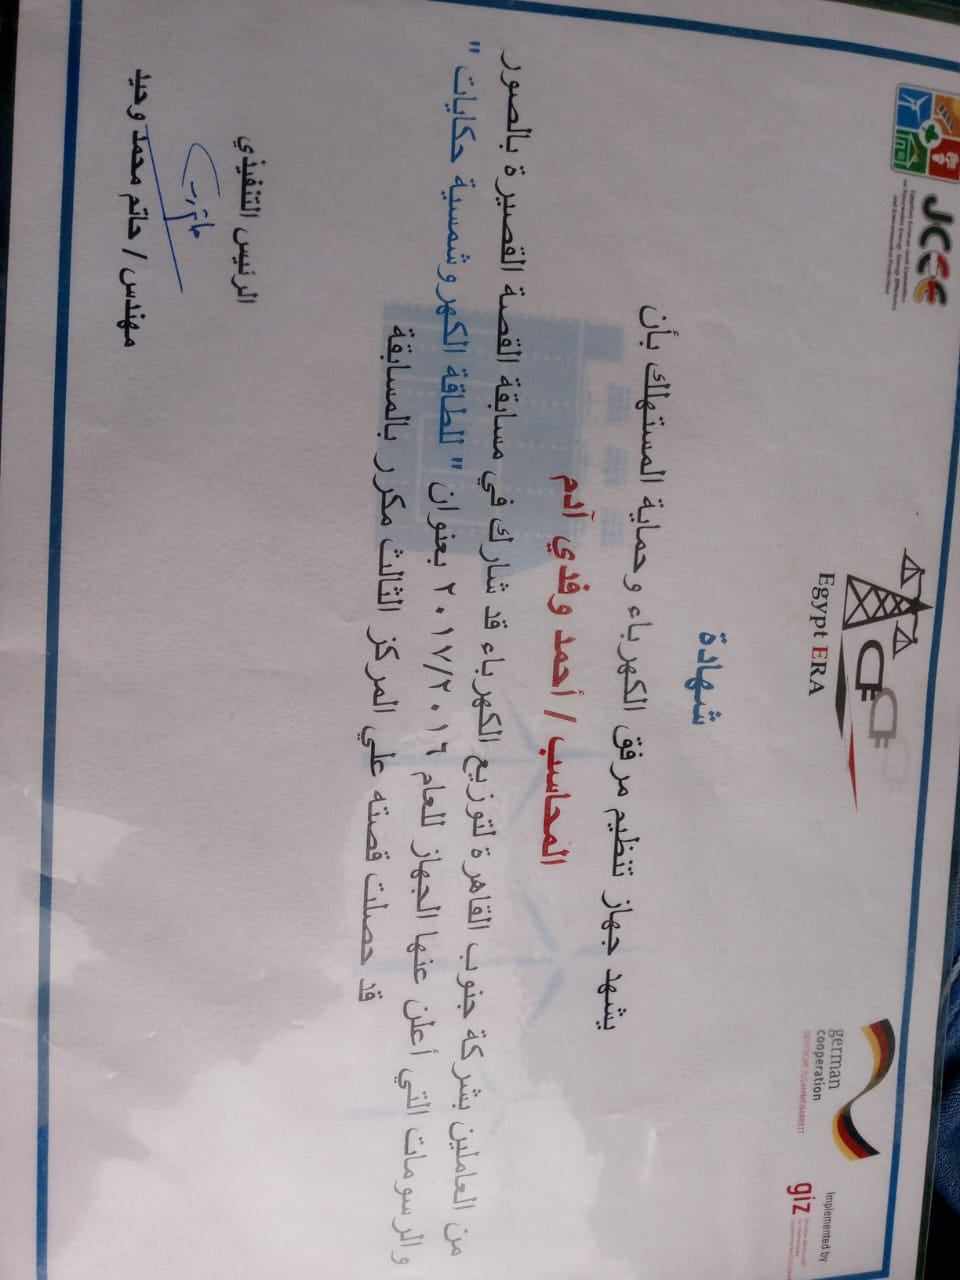 JCEE
Egypt ERA
german
cooperation
DEUTSCHE ZUSAMMENARBEIT
Implemented by
giz
شهادة
يشهد جهاز تنظيم مرفق الكهرباء وحماية المستهلك بأن
المحاسب/ أحمد وفدي آدم
من العاملين بشركة جنوب القاهرة لتوزيع الكهرباء قد شارك في مسابقة القصة القصيرة بالصور
والرسومات التي أعلن عنها الجهاز للعام ٢٠١٧/٢٠١٦ بعنوان " للطاقة الكهروشمسية حكايات "
قد حصلت قصته علي المركز الثالث مكرر بالمسابقة
الرئيس التنفيذي
مهندس/ حاتم محمد وحيد